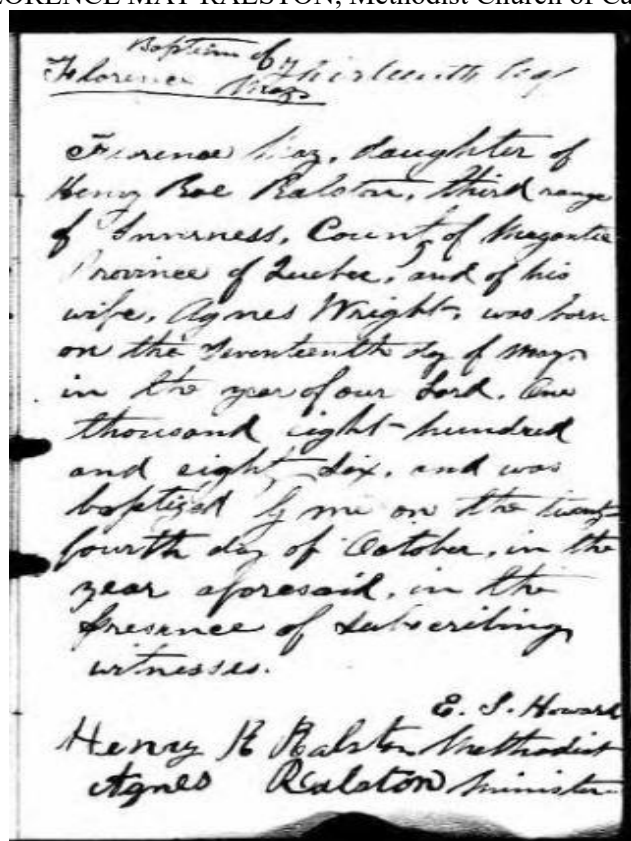 ORENCE MAY RALSTON, Methodist Church of Ca
Baptism of
Florence May Thirteenth
Florence May, daughter of
Henry Roe Ralston, third range
of Inverness, County of Megantic
Province of Quebec, and of his
wife, Agnes Wright, was born
on the Seventeenth day of May,
in the year of our Lord, One
thousand eight-hundred
and eighty Six, and was
baptized by me on the twenty
fourth day of October, in the
year aforesaid, in the
presence of subscribing
witnesses.
E. S. Howard
Henry R Ralston Methodist
Agnes Ralston Minister